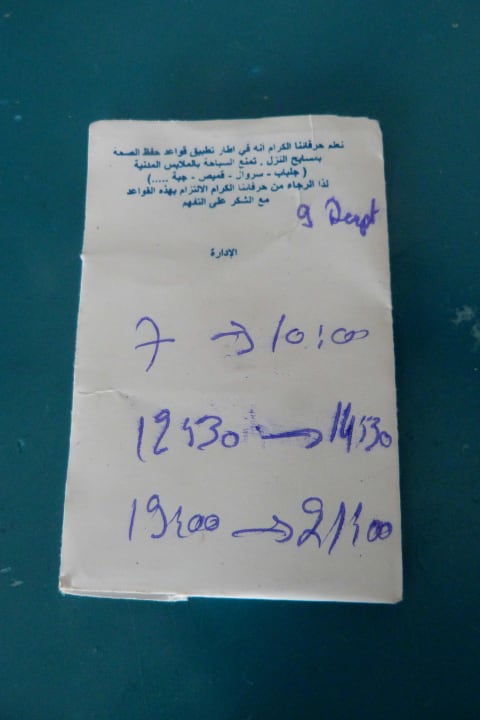 نعلم حرفائنا الكرام أنه في اطار تطبيق قواعد حفظ الصحة
بمسابح النزل . تمنع السباحة بالملابس المدنية
( جلباب - سروال - قميص - جبة .....)
لذا الرجاء من حرفائنا الكرام الالتزام بهذه القواعد
مع الشكر على التفهم
9
الإدارة
7 → 10:00
12:30 → 14:30
19:00 → 21:00